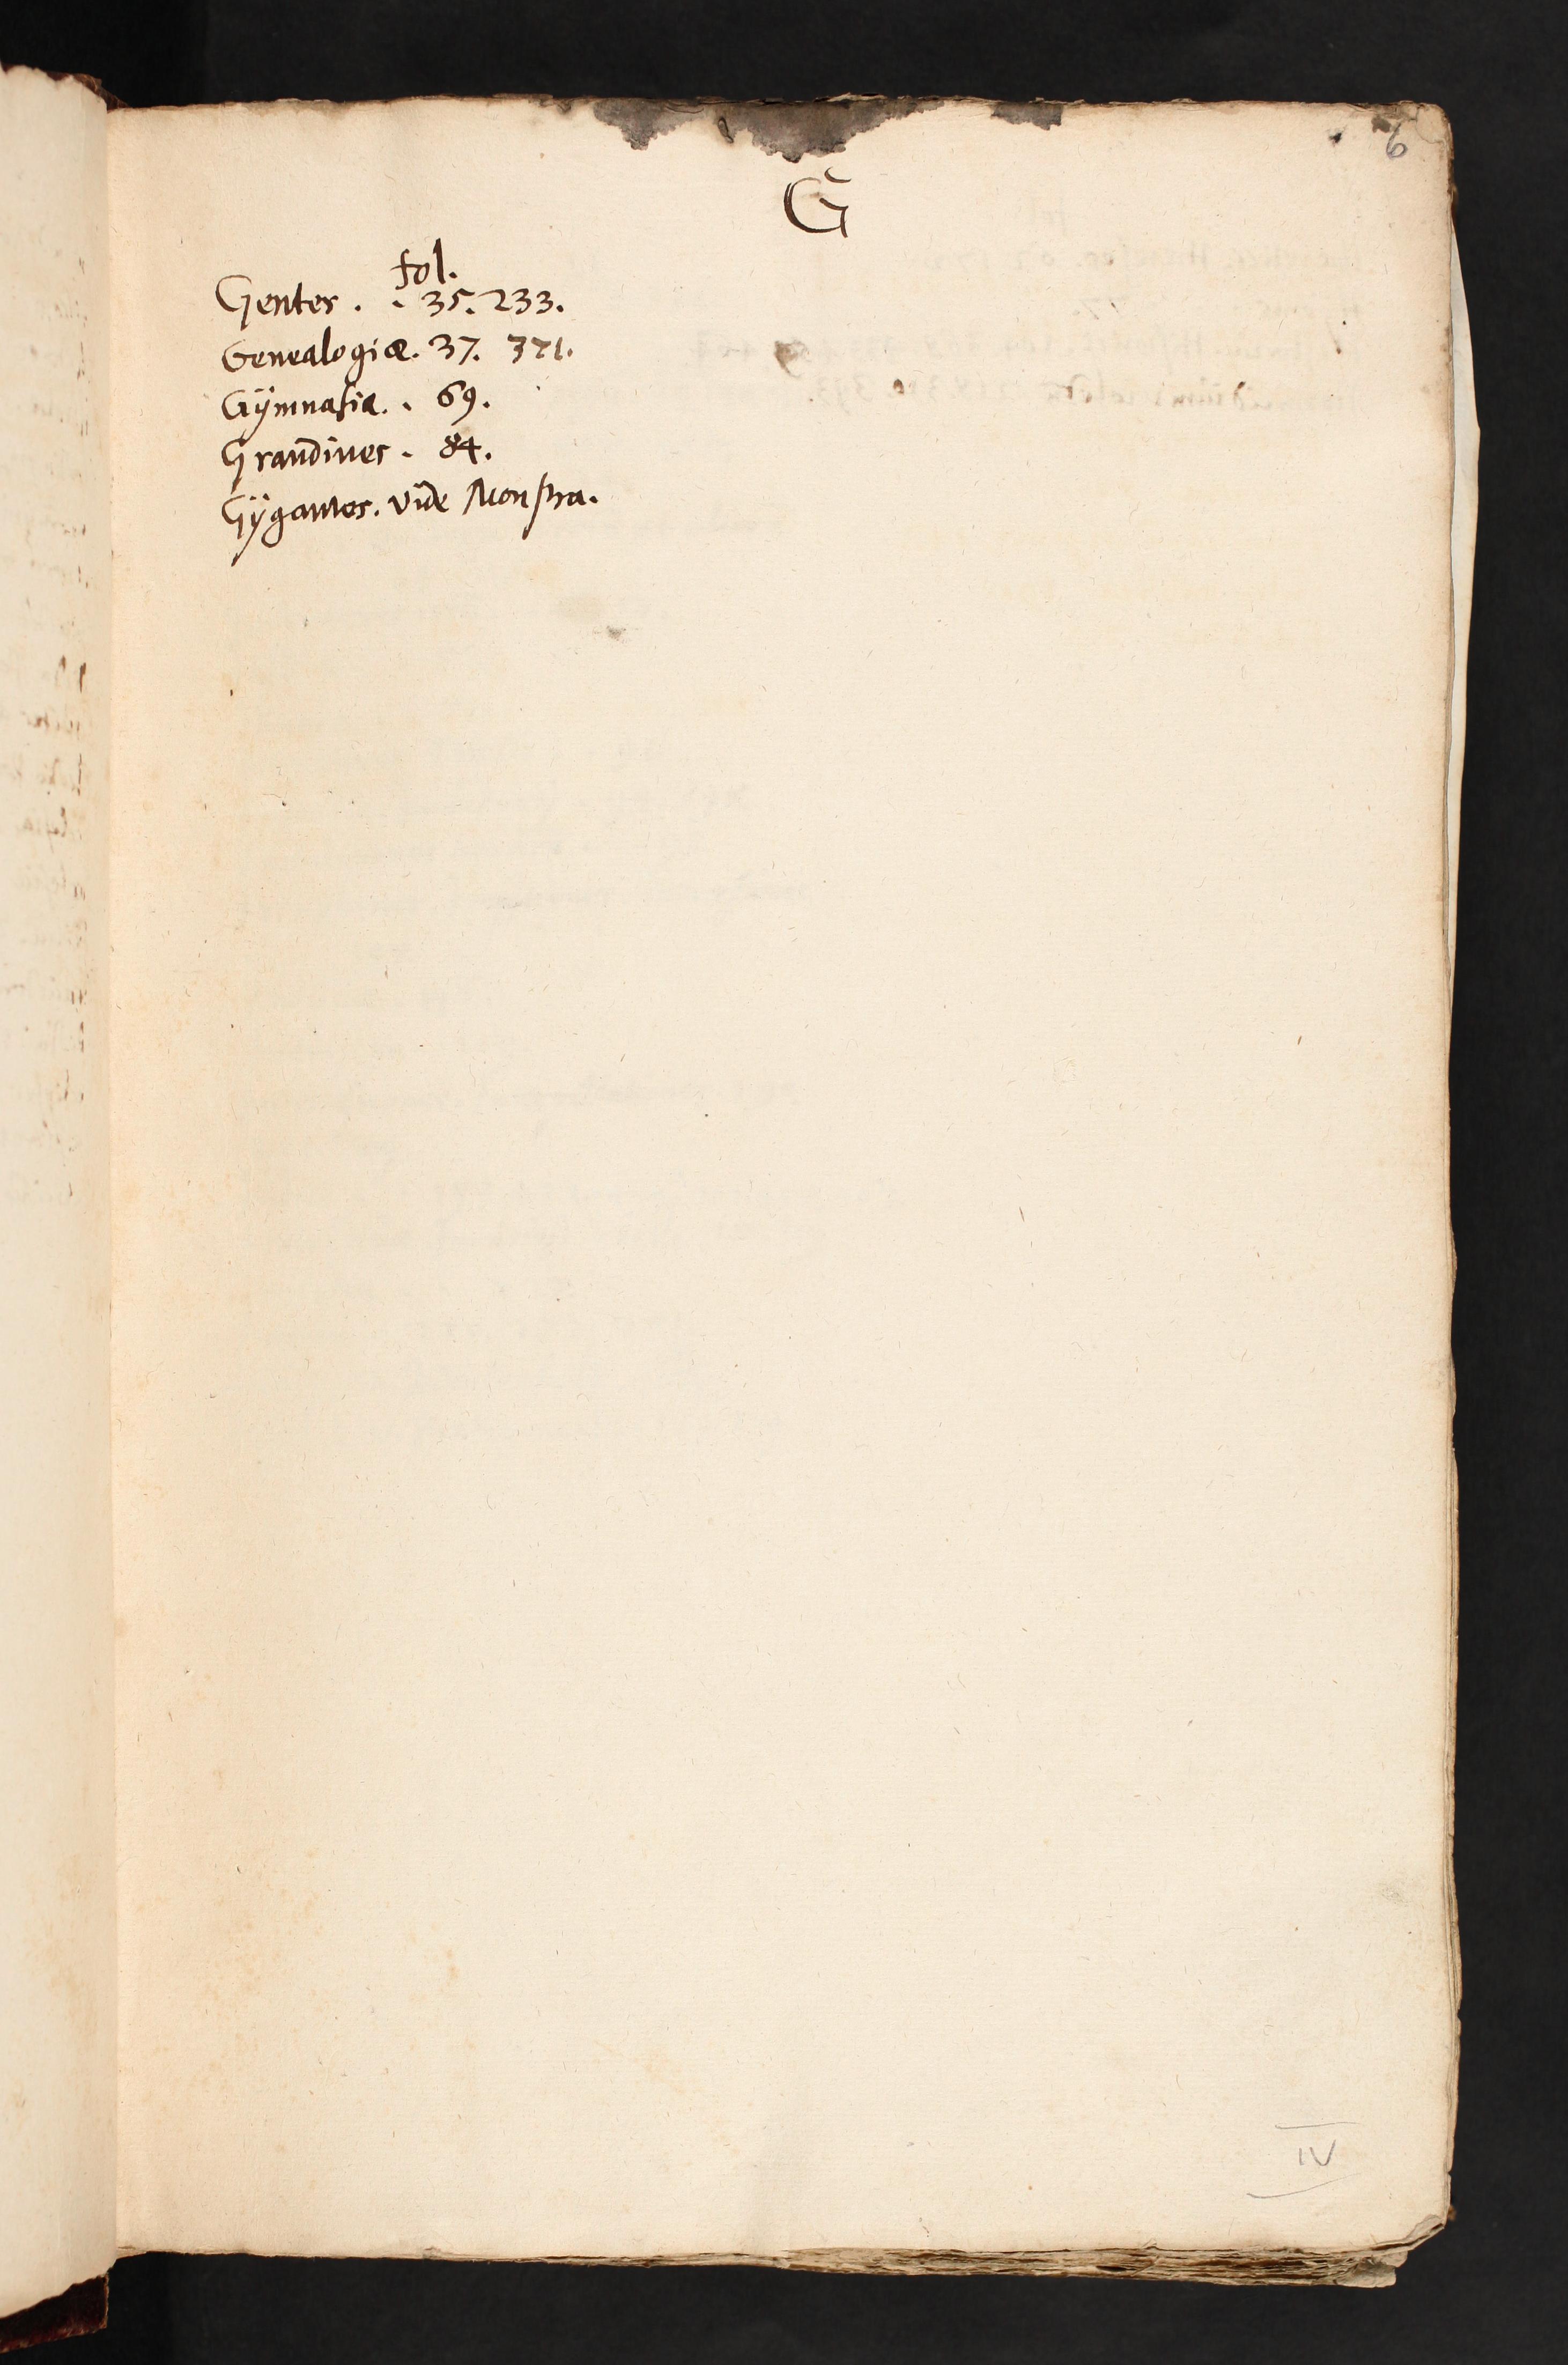 6
G
fol.
Gentes . . 35. 233.
Genealogiæ. 37. 371.
Gÿmnasia. . 69.
Grandines . 84.
Gÿgantes. vide Monstra.
IV